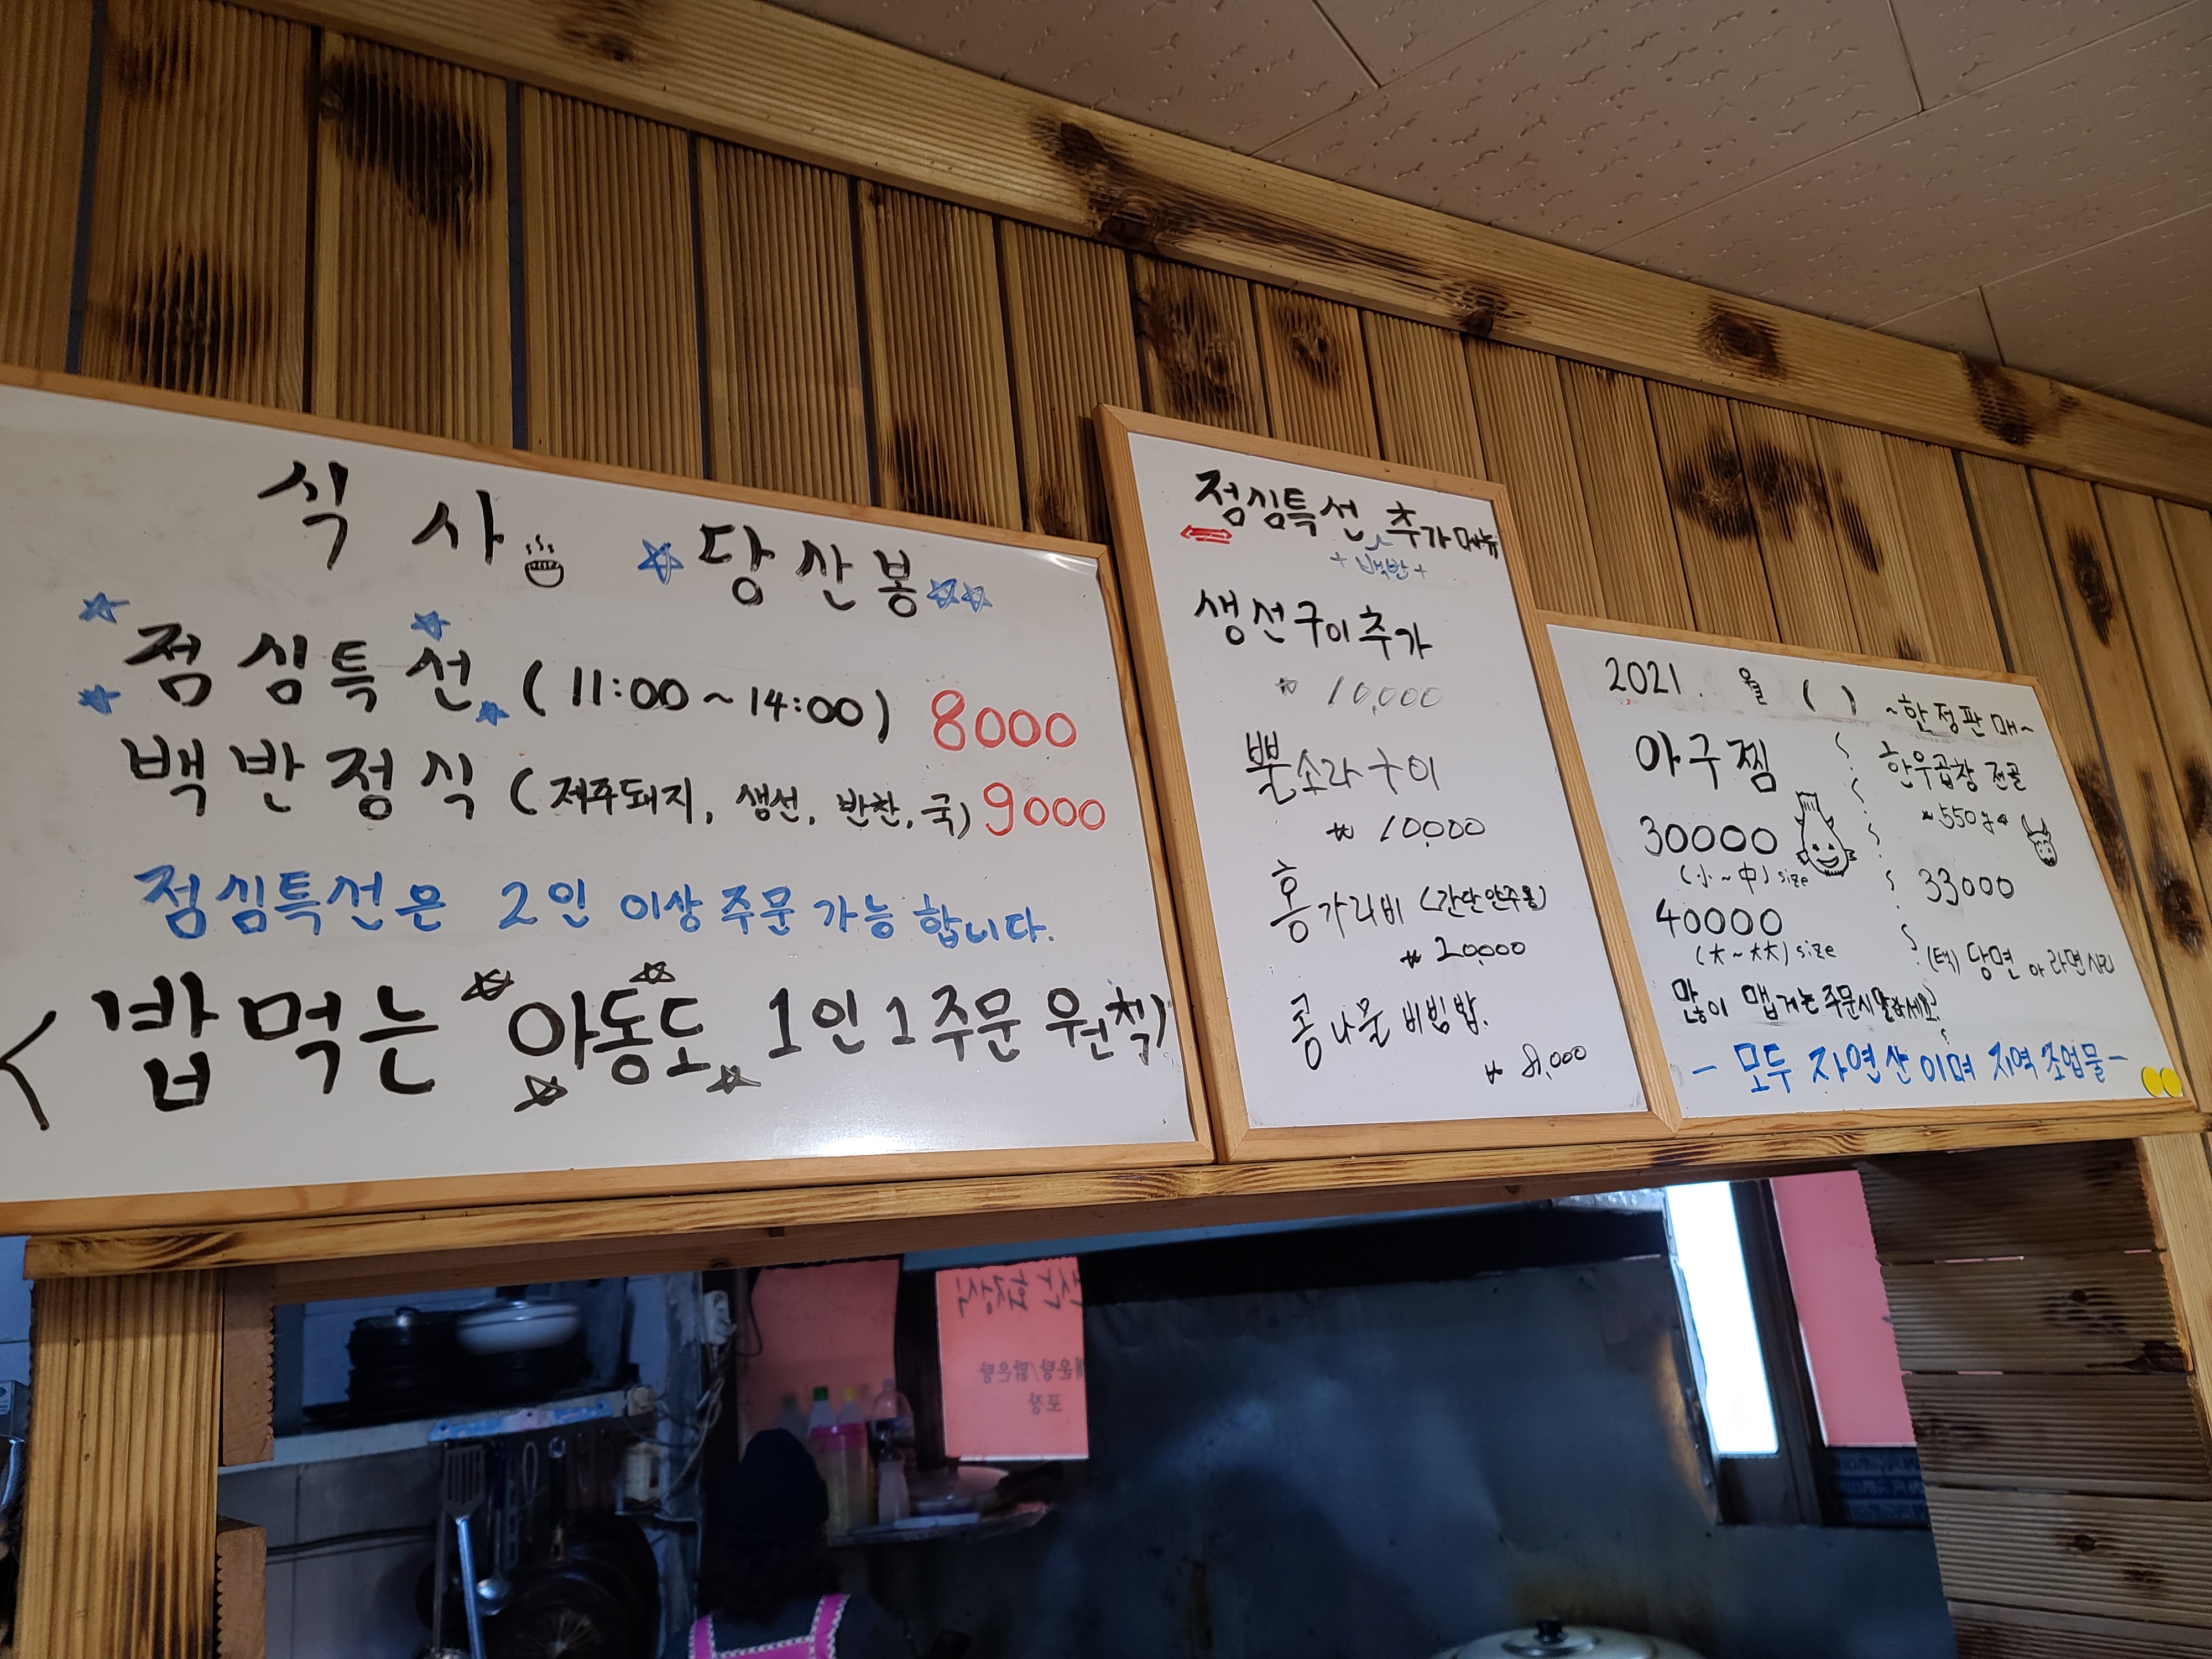 식 사 당산봉
점심특선 (11:00~14:00) 8000
백반정식 (제주돼지, 생선, 반찬, 국) 9000
점심특선은 2인 이상 주문 가능합니다.
<밥 먹는 아동도 1인 1주문 원칙)
점심특선 추가메뉴
+백반+
생선구이추가
₩ 10,000
뿔소라구이
₩ 10,000
홍가리비 (간단안주용)
₩ 20,000
콩나물 비빔밥.
₩ 8,000
2021. 월 ( )
아구찜
30000
(小~中) size
40000
(大~大大) size
많이 맵게는 주문시 말하세요.
~한정판매~
한우곱창 전골
~550g
33000
(택) 당면 or 라면사리
- 모두 자연산이며 지역 조업물 -
매운탕/맑은탕
포장